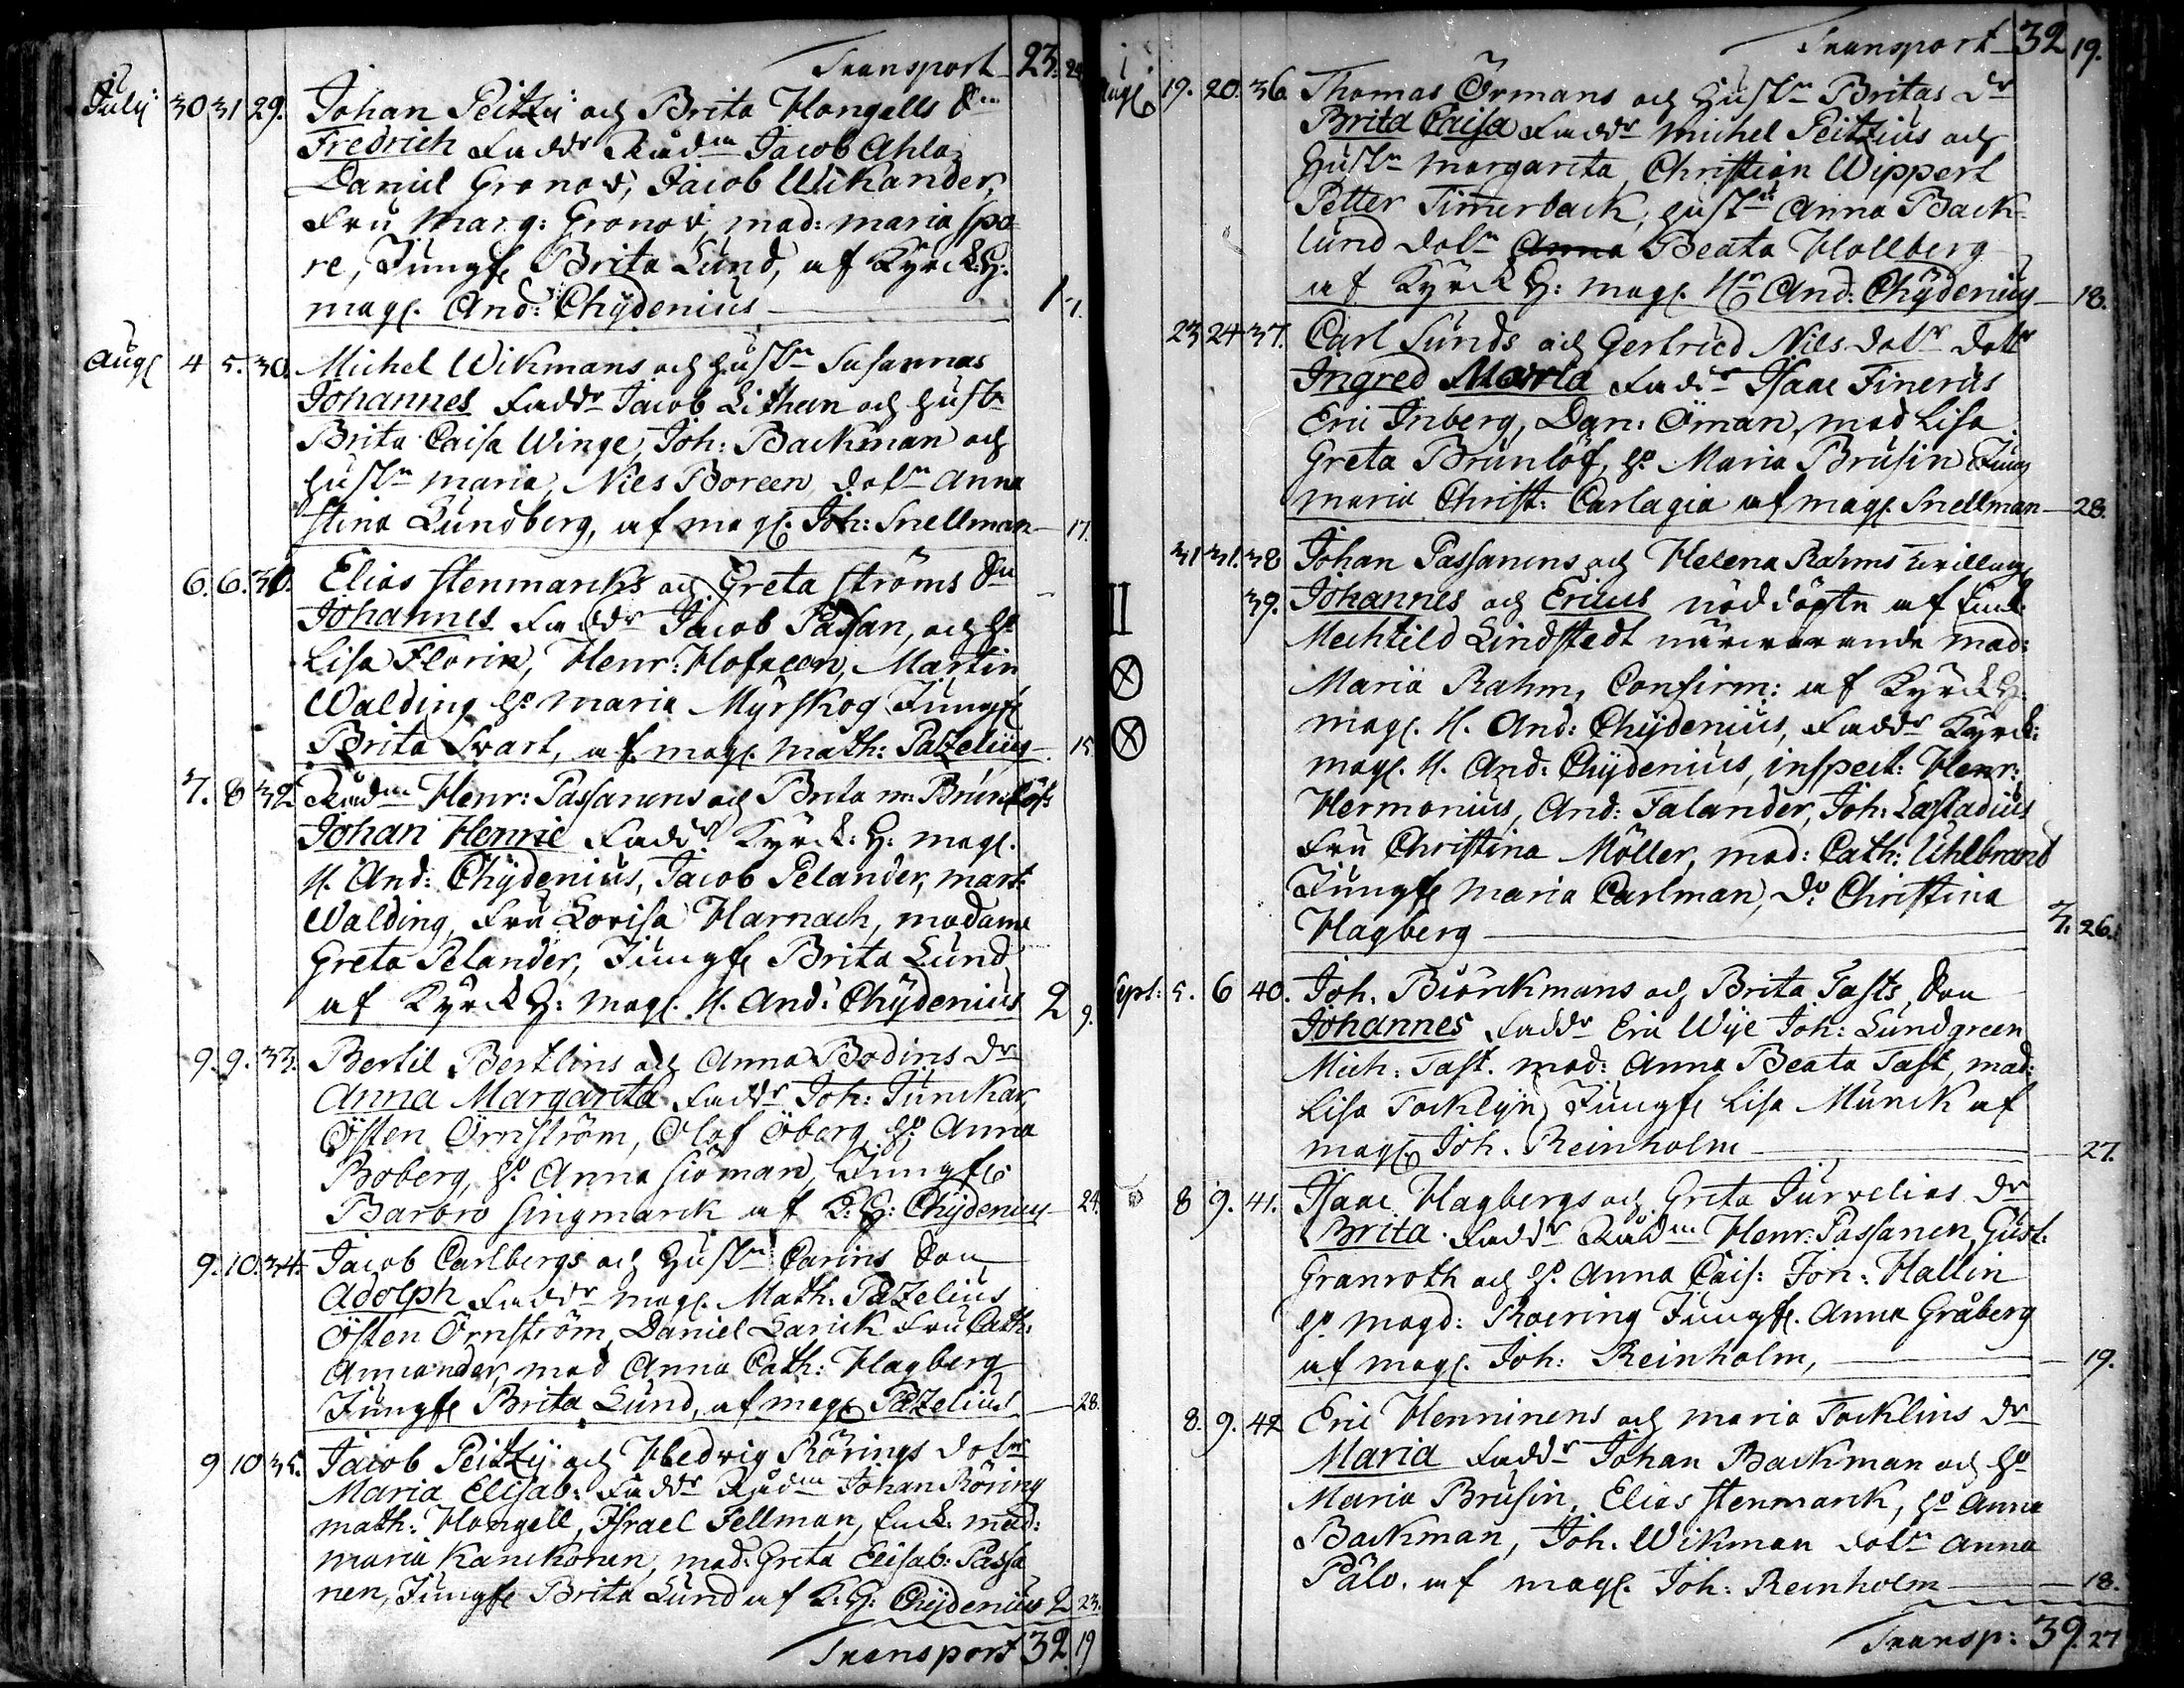 Transport 23. 24
July 30 31 29. Johan Peitzij och Brita Hongells Son
Fredrich Faddr Rådm Jacob Ahla,
Daniel Gronov, Jacob Wikander,
Fru Marg: Gronov, mad: maria Spo=
re, Jungf. Brita Lund, af Kyrck H:
mag. And: Chydenius 1 7.
Aug 4 5. 30. Michel Wikmans och Hustr Susannas
Johannes Faddr Jacob Lithen och Hustr
Brita Caisa Winge, Joh: Backman och
Hustr maria, Niels Boreen dotr Anna
Stina Lundberg, af mag. Joh: Snellman 17.
6. 6. 31. Elias Stenmarcks och Greta Ströms Son
Johannes Faddr Jacob Passan, och H:o
Lisa Florin, Henr: Hofreen, Martin
Walding H:o maria Myrskog Jungf
Brita Svart, af mag. Math: Pazelius 15
7. 8 32. Rådm Henr: Passanens och Brita m: Brunlöfs
Johan Henric Faddr Kyrck: H: mag.
H. And: Chydenius, Jacob Pelander, mart:
Walding, Fru Lovisa Harnach, madame
Greta Pelander, Jungf Brita Lund
af Kyrck H: mag. H. And: Chydenius 2 9.
9. 9. 33. Bertil Bertlins och Anna Bodins Dr
Anna Margareta Faddr Joh: Junckar
Östen Örnström, Olof Öberg, H:o Anna
Boberg, H:o Anna Siöman, Jungf
Barbro Singmarck af K: H: Chydenius 24.
9. 10. 34. Jacob Carlbergs och Hustr Carins Son
Adolph Faddr mag. Math: Pazelius
Östen Örnström, Daniel Larick Fru Cath:
mad Anna Cath: Hagberg
Jungf Brita Lund, af mag Pazelius 28.
9 10 35. Jacob Peitzij och Hedvig Rörings dotr
Maria Elisab: Faddr Rådm Johan Röring
math: Hongell, Israel Fellman, Enck: mad:
maria Kanckonen, mad: Greta Elisab: Passa
nen, Jungf Brita Lund af K: H: Chydenius 2 23.
Transport 32. 19
Transport 32 19.
Aug 19. 20. 36. Thomas Örmans och Hustr Britas Dr
Brita Caisa Faddr Michel Peitzius och
Hustr margareta, Christian Wippert
Petter Timerback, Hustr Anna Back=
lund dotr Anna Beata Hollberg
af Kyrck H: mag. Hr And: Chydenius 18.
23 24 37. Carl Sunds och Gertried Niels dotr dotr
Ingred Maria Faddr Isaac Finerus
Eric Inberg, Dan: Öman, mad Lisa
Greta Brunlöf, H:o Maria Brusin Jung
maria Christ: Carlagia af mag. Snellman 28.
31 31. 38 Johan Passanens och Helena Rahms tvillingar
39. Johannes och Ericus nöddöpte af Enck:
Mechtild Lindstedt närwarande mad:
Maria Rahm, Confirm: af Kyrck H:
mag. H. And: Chydenius, Faddr Kyrck:
mag. H. And: Chydenius, inspect: Henr:
Hermonius, And: Falander, Joh: Læstadius
Fru Christina Möller, mad: Cath: Uhlbrand
Jungf maria Carlman, D:o Christina
Hagberg 7. 26.
Sept: 5. 6 40. Joh. Biörckmans och Brita Tasts, Son
Johannes Faddr Eric Wije Joh: Lundgreen
Mich: Tast. mad: Anna Beata Tast, mad:
Lisa Tocklijn, Jungf Lisa Munck af
mag. Joh. Reinholm 27.
8 9. 41. Isaac Hagbergs och Greta Jurvelias Dr
Brita Faddr Rådm Henr: Passanen, Gust:
Granroth och H:o Anna Cais: Jon: Hallin
H:o magd: Roering Jungf. Anna Gråberg
af mag. Joh: Reinholm, 19.
8. 9. 42 Eric Henninens och maria Tocklins Dr
Maria Faddr Johan Backman och H:o
Maria Brusin, Elias Stenmarck, H:o Anna
Backman, Joh. Wikman dotr Anna
Pålo. af mag. Joh: Reinholm 18.
Transp: 39. 27